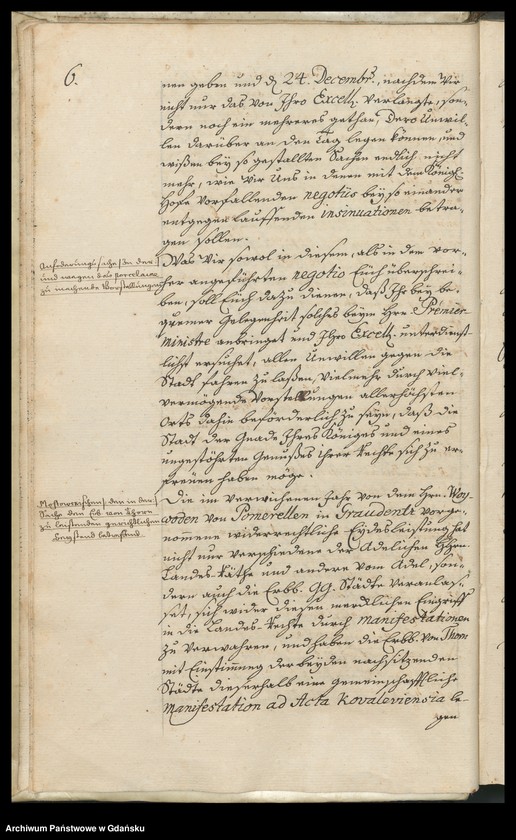 6.
nen geben und d. 24. Decembr., nachdem Wir
nicht nur das von Ihro Excell. verlangte, son-
dern noch ein mehreres gethan, Dero Unwil-
len darüber an den Tag legen können, und
wißen bey so gestallten Sachen endlich nicht
mehr, wie Wir Uns in denen mit dem Königl.
Hofe vorfallenden negotiis bey so einander
entgegen lauffenden insinuationen betra-
gen sollen.
Anforderungs
und wegen des
zu machende Vorstellungen
Was Wir sowol in diesem, als in dem vor-
her angeführten negotio Euch überschrei-
ben, soll Euch dazu dienen, daß Ihr bey be-
quemer Gelegenheit solches beym Hrn. Premier
ministre anbringet und Ihro Excell. unterdienst-
lichst ersuchet, allen Unwillen gegen die
Stadt fahren zu laßen, vielmehr durch viel-
vermögende Vorstellungen allerhöchsten
Orts dahin beförderlich zu seyn, daß die
Stadt der Gnade Ihres Königes und eines
ungestöhrten Genußes ihrer Rechte sich zu er-
freuen haben möge.
den in der
Sache den von Thorn
zu leistenden gerichtlichen
Beystand betreffend.
Die im verwichenen Jahr von dem Hrn. Woy-
woden von Pomerellen in Graudentz vorge-
nommene widerrechtliche Eydesleistung hat
nicht nur verschiedene der Adelichen Hhrn.
Landes-Räthe und andere vom Adel, son-
dern auch die Erbb. gg. Städte veranlas-
set, sich wider diesen merklichen Eingriff
in die Landes-Rechte durch manifestationen
zu verwahren, und haben die Erbb. von Thorn
mit Einstimmung der beyden nachsitzenden
Städte dieserhalb eine gemeinschafftliche
Manifestation ad Acta Kovaleviensia le-
gen
Archiwum Państwowe w Gdańsku